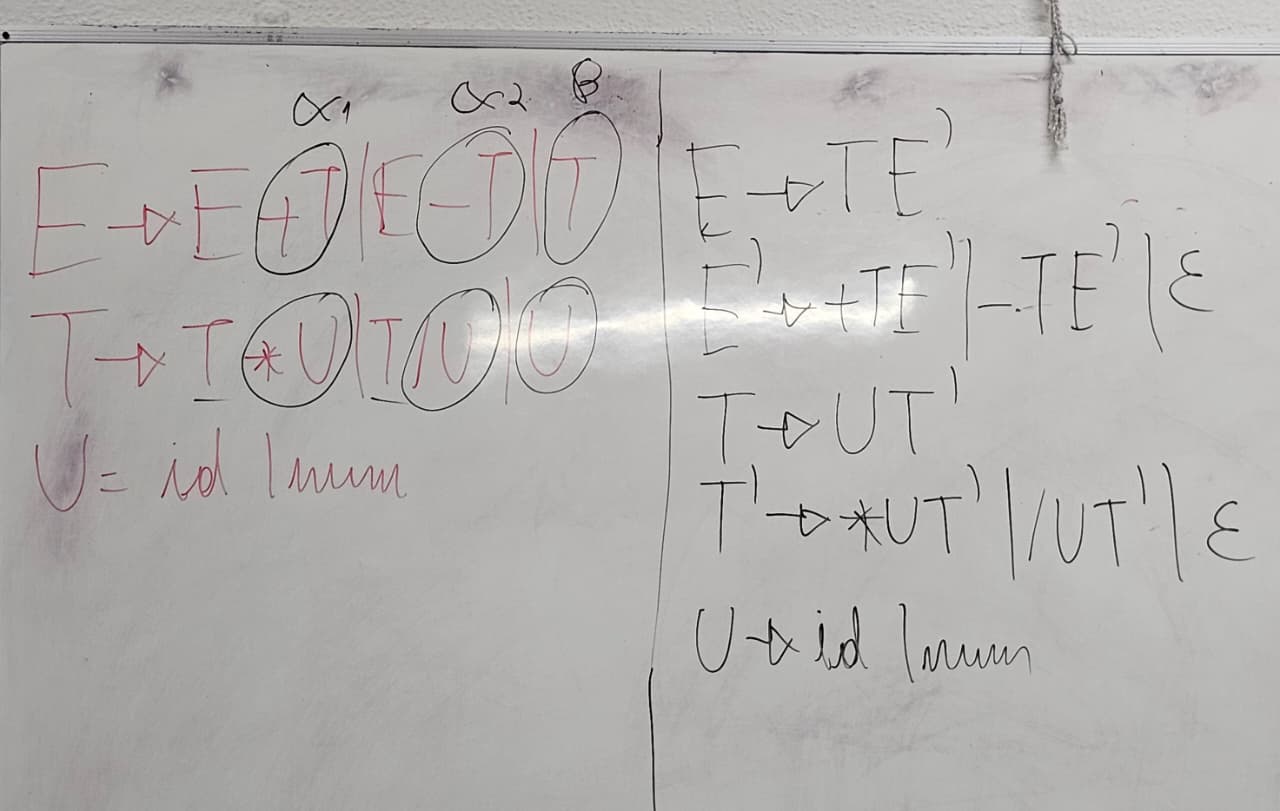 α1 α2 β
E → E +T | E -T | T
T → T *U | T /U | U
U = id | num
E → TE'
E' → +TE' | -TE' | ε
T → UT'
T' → *UT' | /UT' | ε
U → id | num